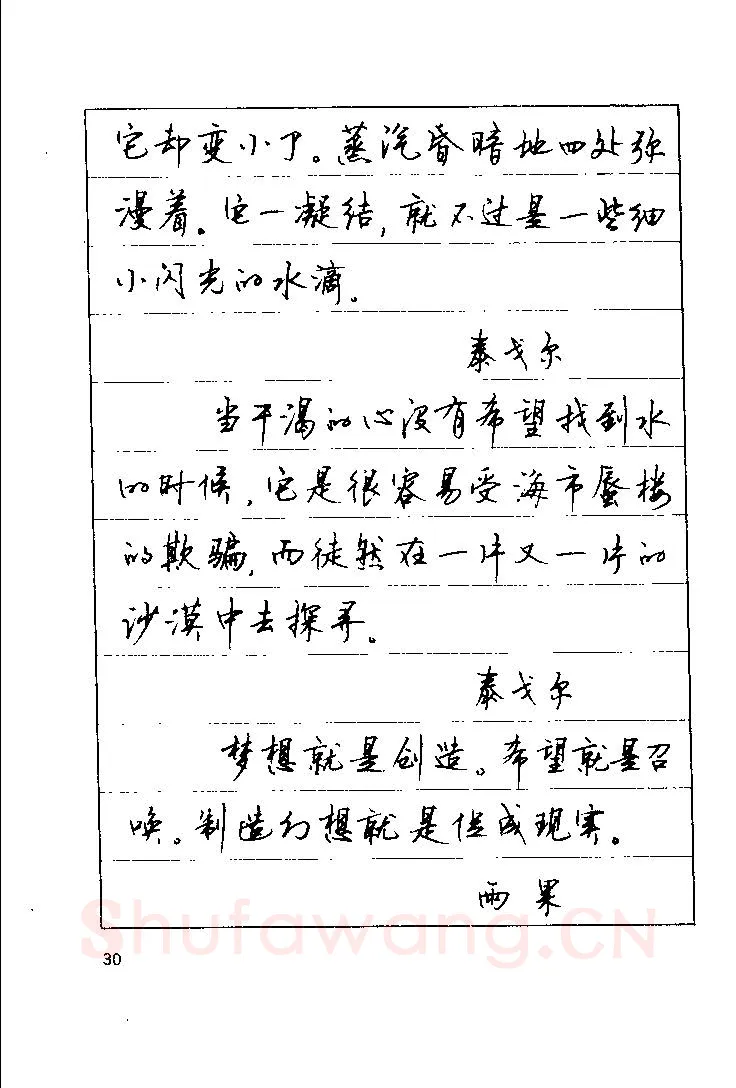 它却变小了。蒸汽昏暗地四处弥
漫着。它一凝结,就不过是一些细
小闪光的水滴。
泰戈尔
当干渴的心没有希望找到水
的时候,它是很容易受海市蜃楼
的欺骗,而徒然在一片又一片的
沙漠中去探寻。
泰戈尔
梦想就是创造。希望就是召
唤。制造幻想就是促成现实。
雨果
Shufawang.CN
30